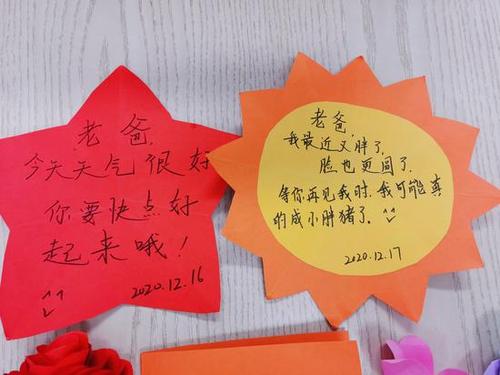 老爸,
今天天气很好
你要快点好
起来哦!
^^
2020.12.16
老爸,
我最近又胖了,
脸也更圆了,
等你再见我时,我可能真
的成小胖猪了. ^^
2020.12.17